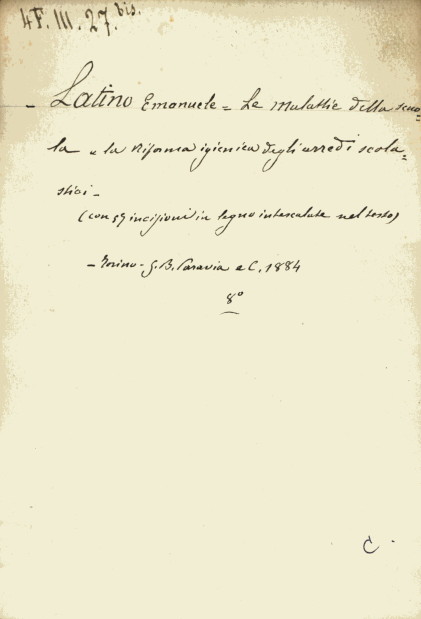 4F. III. 27. bis.
- Latino Emanuele = Le malattie della scuo=
la e la riforma igienica degli arredi scola=
stici -
(con 59 incisioni in legno intercalate nel testo)
- Torino - G. B. Paravia e C. 1884
8º
C.